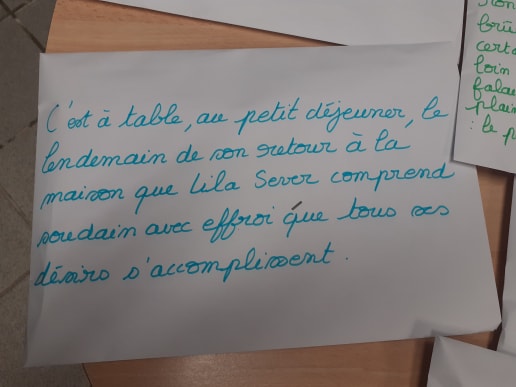 C'est à table, au petit déjeuner, le
lendemain de son retour à la
maison que Lila Sever comprend
soudain avec effroi que tous ses
désirs s'accomplissent.
brû
certa
loin
falai
plain
: le p